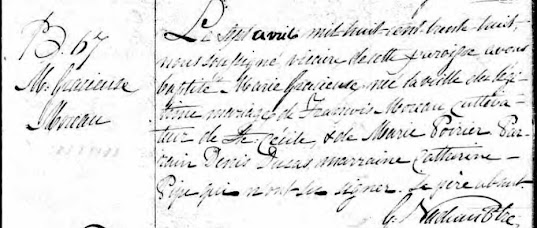 B. 67
M. Gracieuse
Moreau
Le sept avril mil huit cent trente huit,
nous soussigné vicaire de cette paroisse avons
baptisé Marie Gracieuse, née la veille du légi
time mariage de François Moreau cultiva
teur de Ste Cécile, & de Marie Poirier Par
rain Denis Lucas marraine Catherine
Pipe qui n'ont su signer. Le père absent.
Ptre